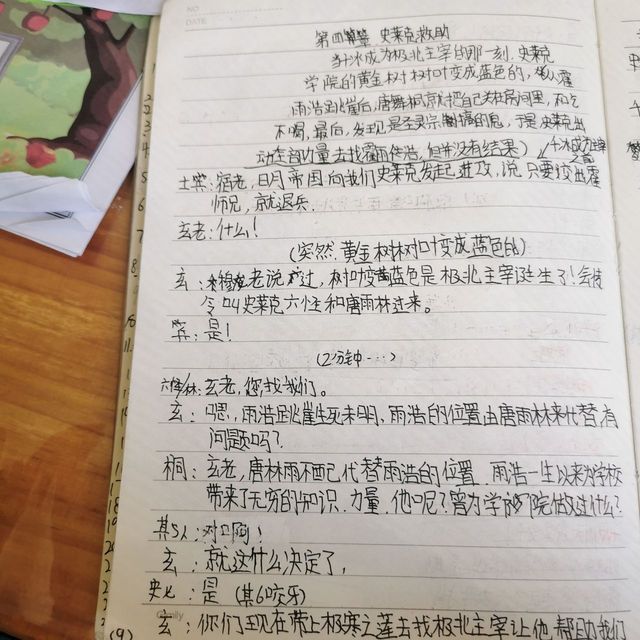 NO
DATE
第四篇章 史莱克救助
当冰成为极北主宰的那一刻,史莱克
学院的黄金树树叶变成蓝色的,
雨浩跳崖后,唐舞桐就把自己关在房间里,不吃
不喝,最后,发现是圣灵宗搞的鬼,于是史莱克出
动全部力量去找霍雨浩,但并没有结果)
士兵:宿老,日月帝国向我们史莱克发起进攻,说只要交出霍
师兄,就退兵.
玄老:什么!
(突然,黄金树树叶变成蓝色的)
玄:穆老说过,树叶变蓝色是极北主宰诞生了!
令叫史莱克六怪和唐雨林过来。
兵:是!
(2分钟…)
玄老,您找我们。
玄:嗯,雨浩跳崖生死未明,雨浩的位置由唐雨林来代替,有
问题吗?
桐:玄老,唐林雨不配代替雨浩的位置,雨浩一生以来为学校
带来了无穷的知识,力量,他呢?曾为学院做过什么?
其5人:对啊!
玄:就这什么决定了,
史七:是(其6咬牙)
玄:你们现在带上极寒之莲去找极北主宰让他帮助我们
(9)